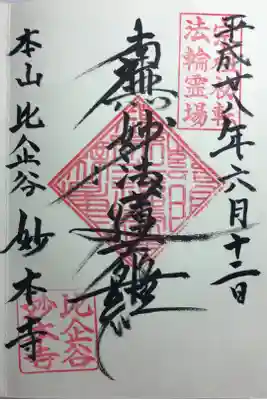 平成廿八年六月十二日
法輪霊場
南無妙法蓮華経
本山 比企谷 妙本寺
比企谷
妙本寺